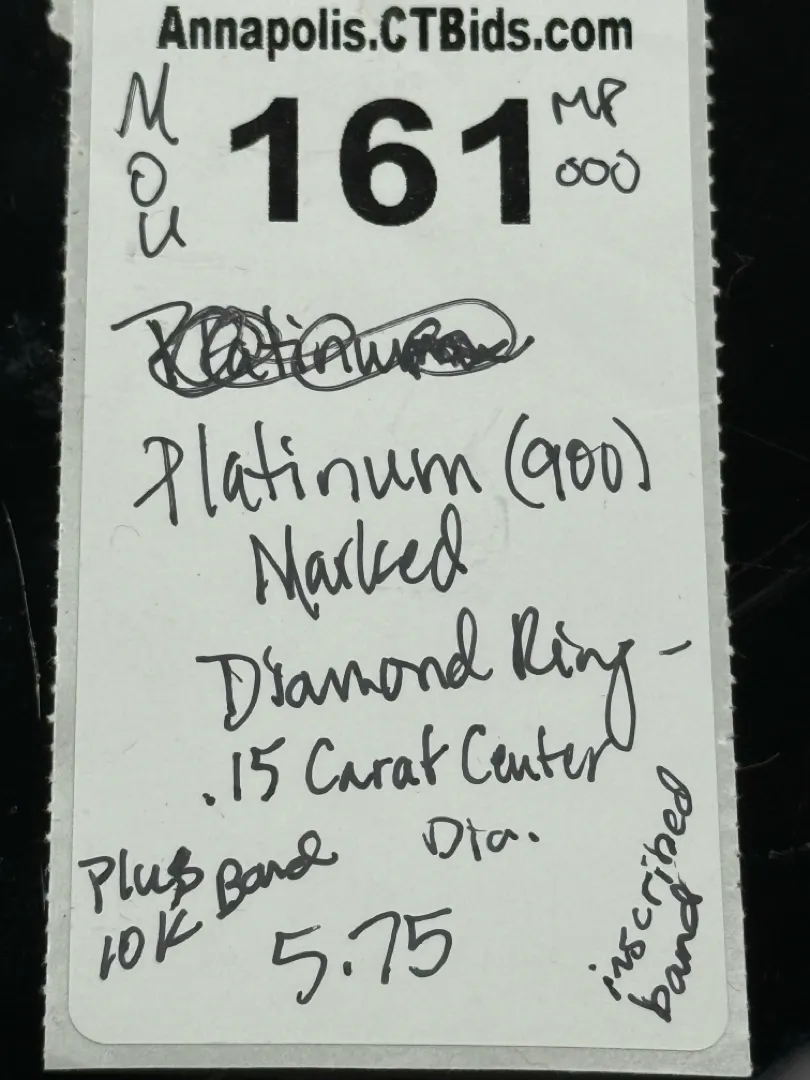 Annapolis.CTBids.com
M
O
U
161
MP
000
Platinum (900)
Marked
Diamond Ring -
.15 Carat Center
Dia.
Plus Band
10K
5.75
inscribed
band